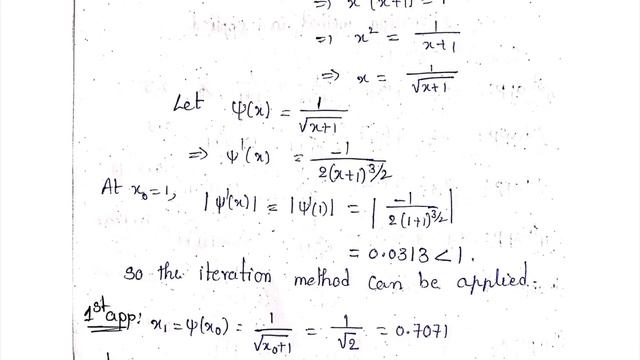 ⇒ x²(x+1) = 1
⇒ x² = 1/(x+1)
⇒ x = 1/√(x+1)
Let ψ(x) = 1/√(x+1)
⇒ ψ'(x) = -1/(2(x+1)^(3/2))
At x₀=1, |ψ'(x)| = |ψ'(1)| = |-1/(2(1+1)^(3/2))|
= 0.0313 < 1.
so the iteration method can be applied.
1st app: x₁ = ψ(x₀) = 1/√(x₀+1) = 1/√2 = 0.7071